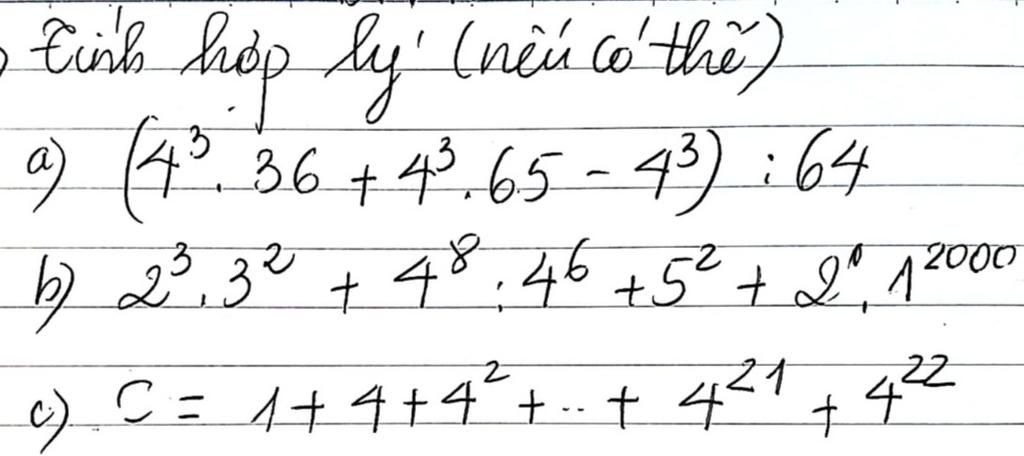 ) Tính hợp lý (nếu có thể)
a) (4³ . 36 + 4³ . 65 - 4³) : 64
b) 2³ . 3² + 4⁸ : 4⁶ + 5² + 2⁰ . 1²⁰⁰⁰
c) C = 1 + 4 + 4² + .. + 4²¹ + 4²²